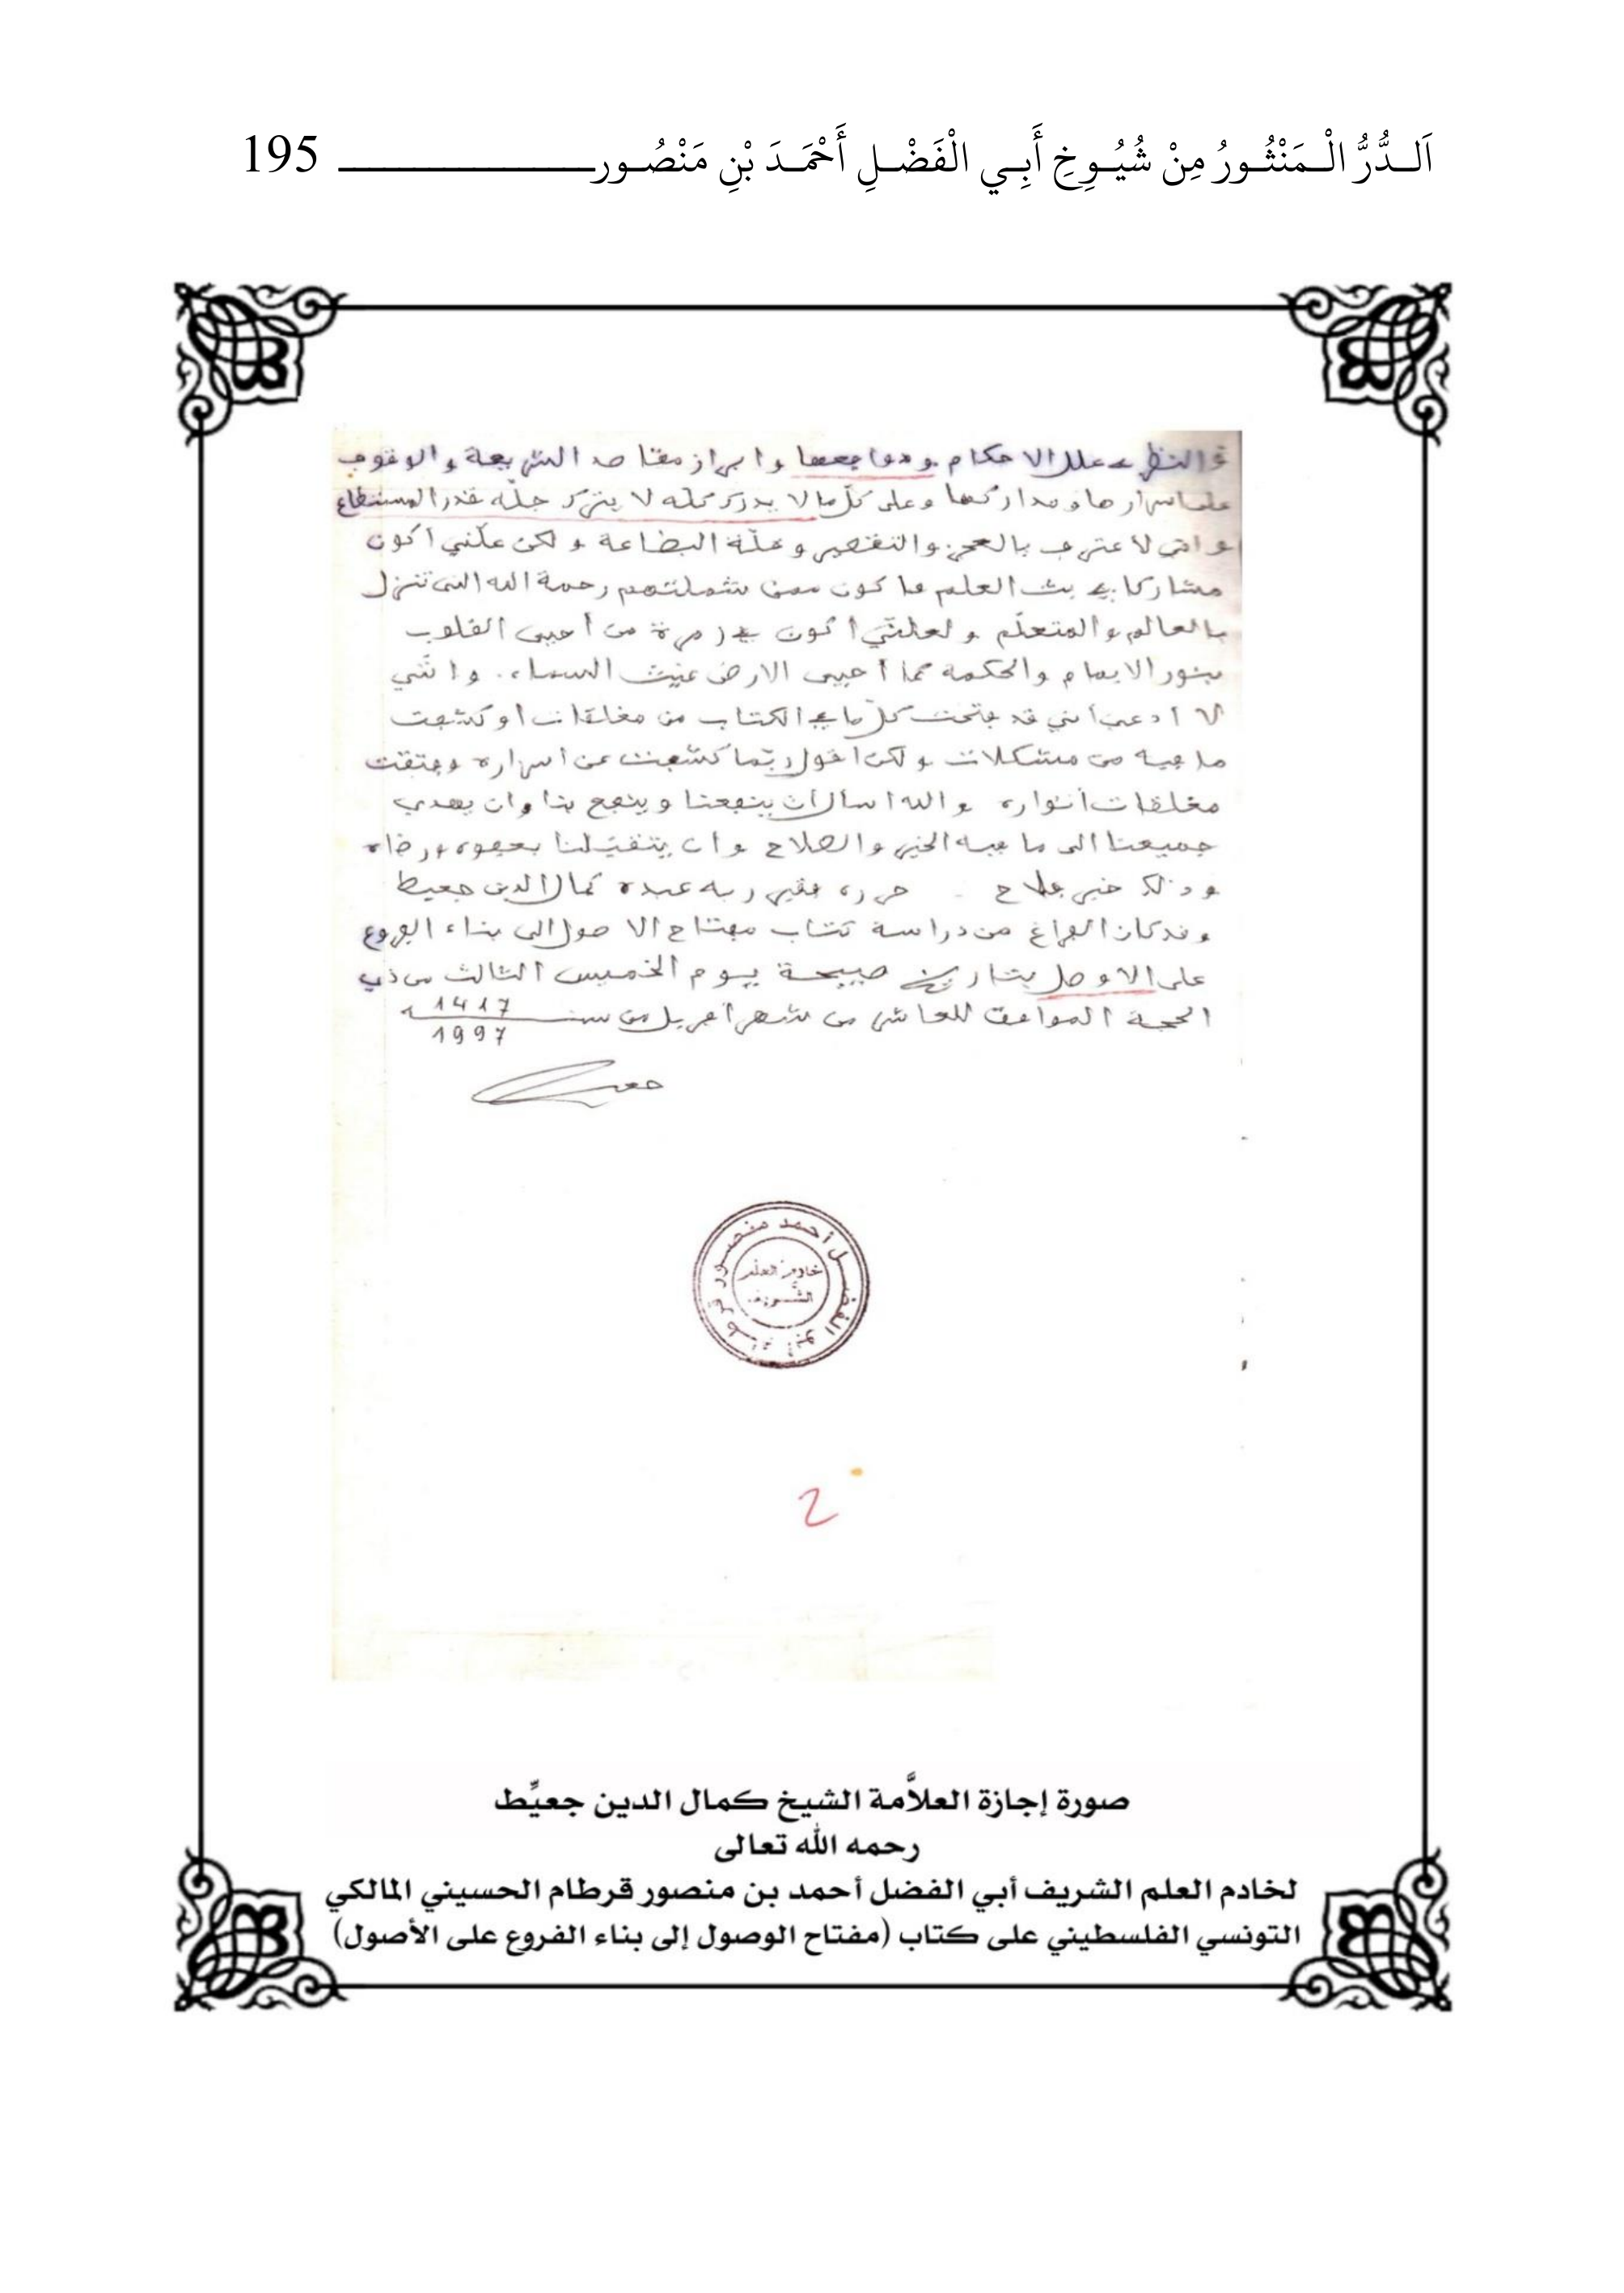 اَلــدُّرُّ الْـمَنْثُـورُ مِنْ شُيُـوخِ أَبِـي الْفَضْـلِ أَحْمَـدَ بْنِ مَنْصُـور 195
والنظر في علل الاحكام ومواقعها وابراز مقاصد الشريعة والوقوف
على اسرارها ومداركها وعلى كلّ ما لا يدرك كله لا يترك جلّه قدر المستطاع
واني لاعترف بالعجز والتقصير وقلّة البضاعة ولكن علّني أكون
مشاركا في بث العلم فاكون ممن شملتهم رحمة الله التي تنزل
بالعالم والمتعلّم ولعلّني أكون في زمرة من أحيى القلوب
بنور الايمان والحكمة كما أحيى الارض غيث السماء. وانّني
لا ادعي أنني قد فتحت كلّ ما في الكتاب من مغلقات او كشفت
ما فيه من مشكلات ولكن اقول ربّما كشفت عن اسراره وفتقت
مغلقات أنواره والله اسأل ان ينفعنا وينفع بنا وان يهدي
جميعنا الى ما فيه الخير والصلاح وان يتقبّل لنا بعفوه ورضاه
وذلك خير فلاح حرره فقير ربه عبده كمال الدين جعيط
وقد كان الفراغ من دراسة كتاب مفتاح الاصول الى بناء الفروع
على الاوصل بتاريخ صبيحة يوم الخميس الثالث من ذي
الحجة الموافق للعاشر من شهر أفريل من سنة 1417
1997
جعيط
أبو الفضل أحمد منصور قرطام
خادم العلم
الشريف
2
صورة إجازة العلاَّمة الشيخ كمال الدين جعيِّط
رحمه الله تعالى
لخادم العلم الشريف أبي الفضل أحمد بن منصور قرطام الحسيني المالكي
التونسي الفلسطيني على كتاب (مفتاح الوصول إلى بناء الفروع على الأصول)